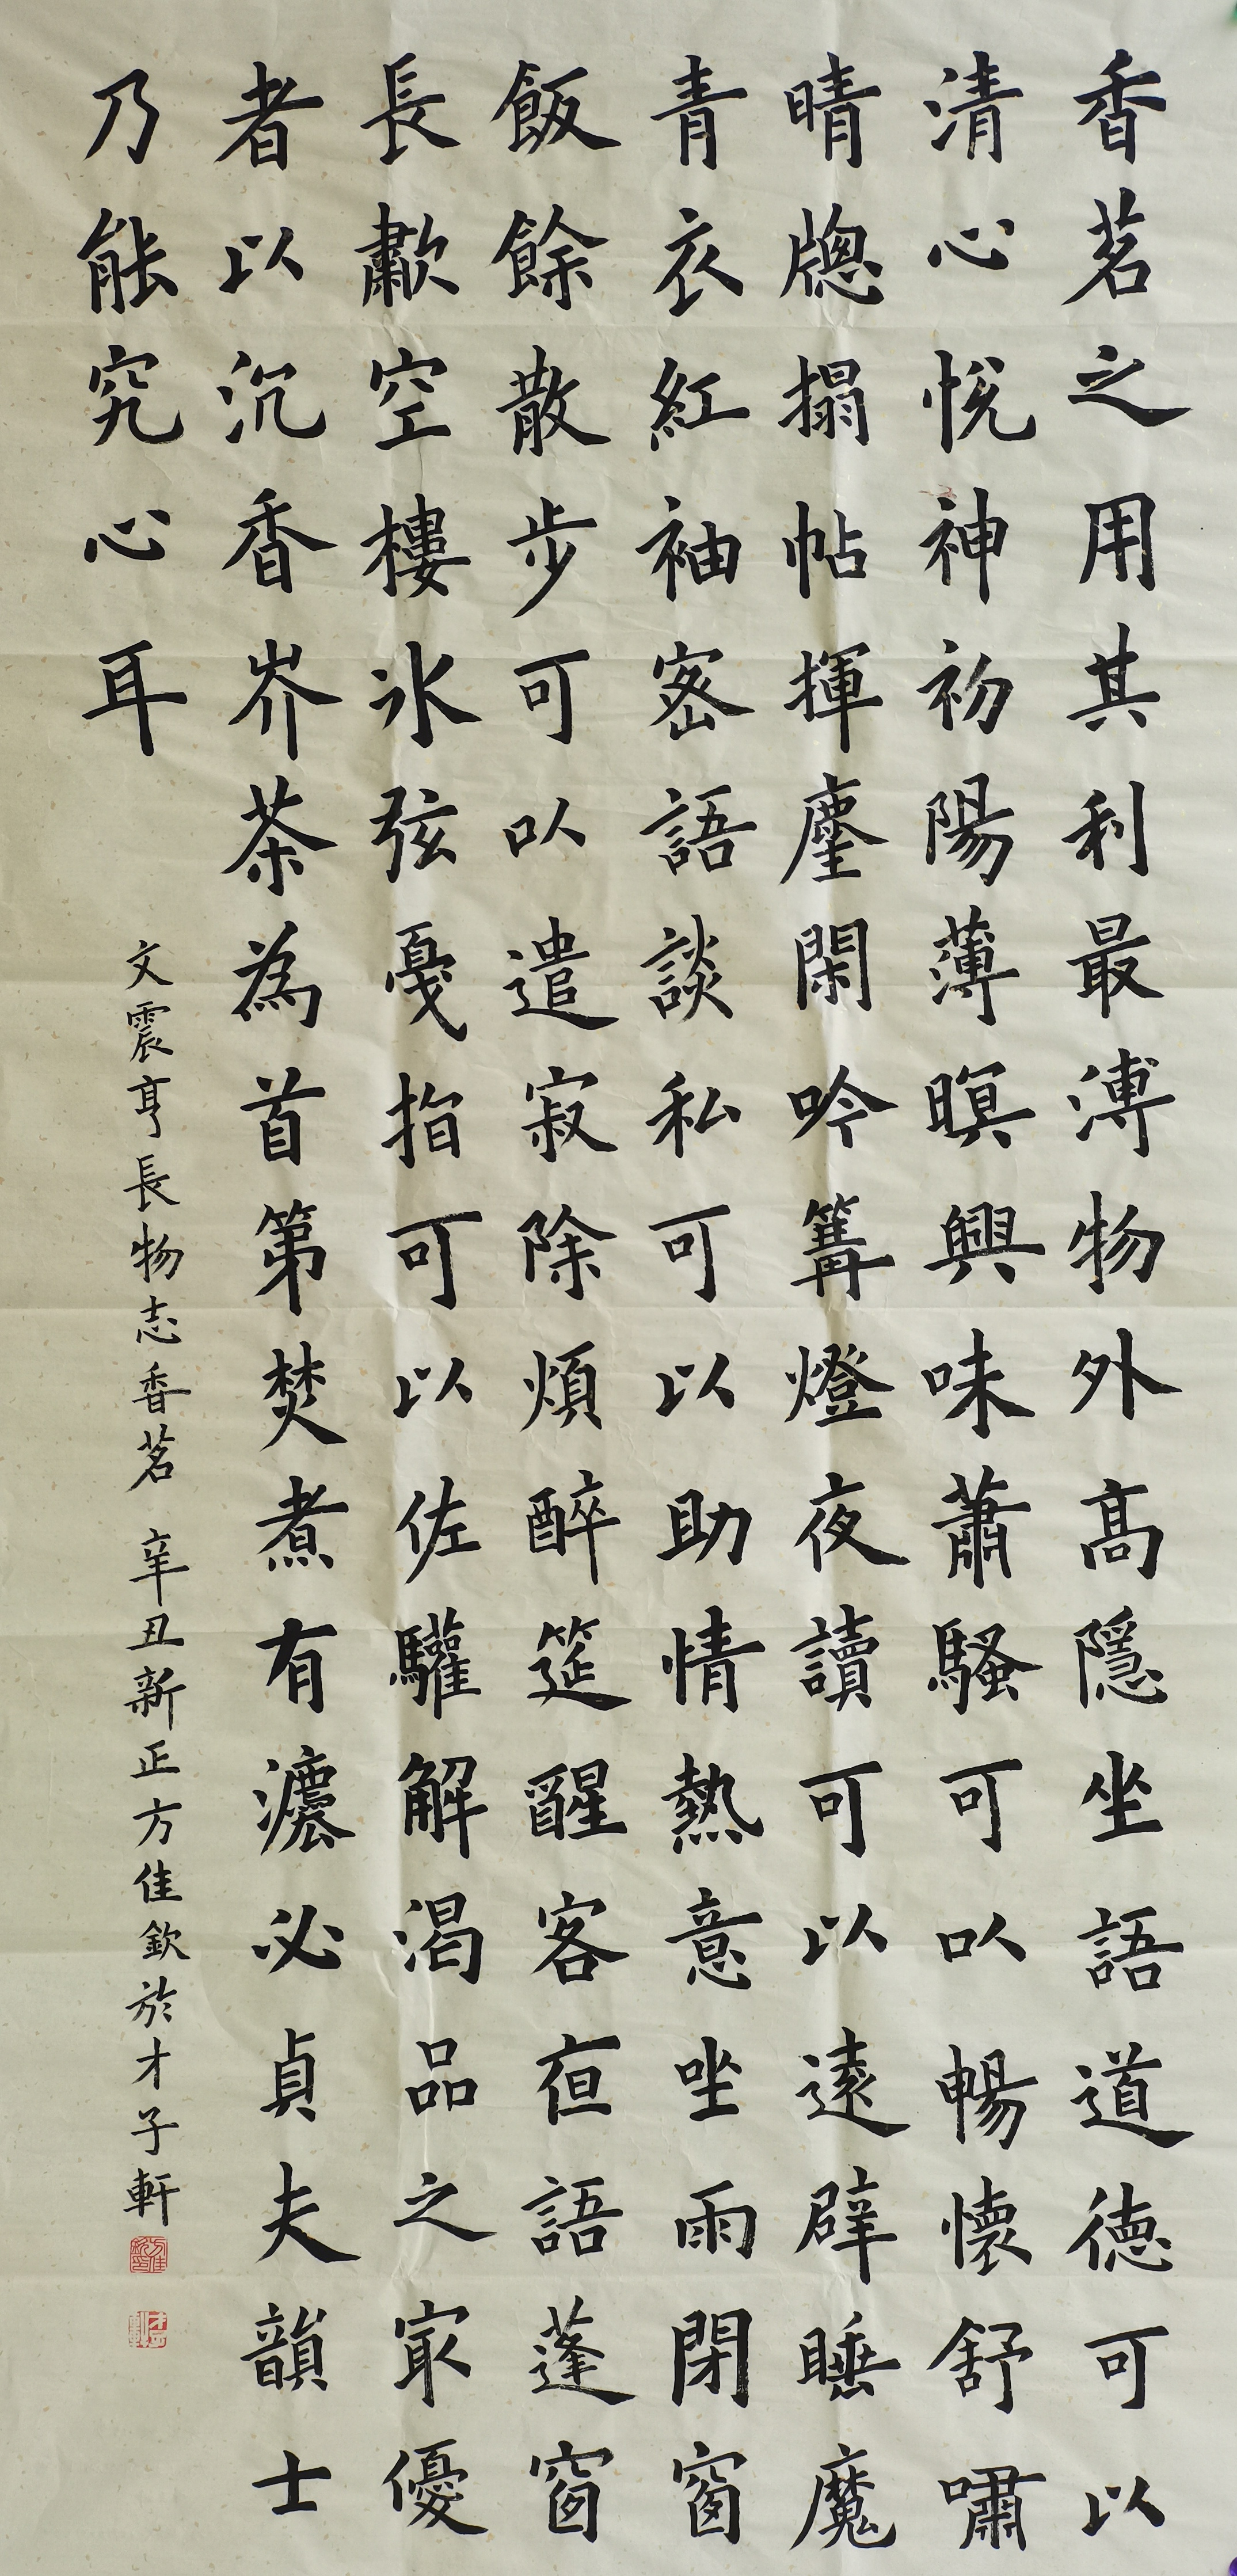 香茗之用其利最溥物外高隱坐語道德可以
清心悅神初陽薄暝興味蕭騷可以暢懷舒嘯
晴牕搨帖揮麈閑吟篝燈夜讀可以遠辟睡魔
青衣紅袖密語談私可以助情熱意坐雨閉窗
飯餘散步可以遣寂除煩醉筵醒客夜語蓬窗
長歗空樓冰弦戞指可以佐驩解渴品之冣優
者以沉香岕茶為首第焚煮有灋必貞夫韻士
乃能究心耳
文震亨長物志香茗 辛丑新正方佳欽於才子軒
方佳欽印